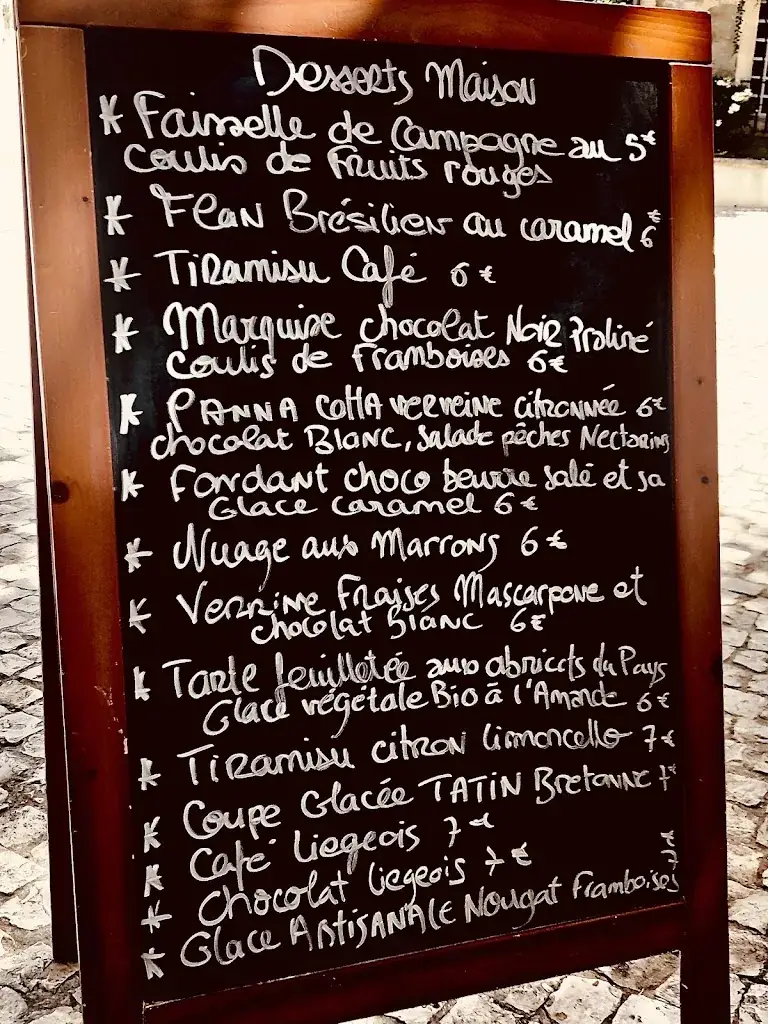 Desserts Maison
* Faisselle de Campagne au 5€
coulis de fruits rouges
* Flan Brésilien au caramel 6€
* Tiramisu Café 6€
* Marquise chocolat Noir Praliné
coulis de framboises 6€
* Panna cotta verveine citronnée 6€
chocolat Blanc, salade pêches Nectarins
* Fondant choco beurre salé et sa
Glace caramel 6€
* Nuage aux Marrons 6€
* Verrine Fraises Mascarpone et
chocolat Blanc 6€
* Tarte feuilletée aux abricots du Pays
Glace végétale Bio à l'Amande 6€
* Tiramisu citron limoncello 7€
* Coupe Glacée TATIN Bretonne 7€
* Café liegeois 7€
* Chocolat liegeois 7€
* Glace ARTISANALE Nougat Framboises 7€